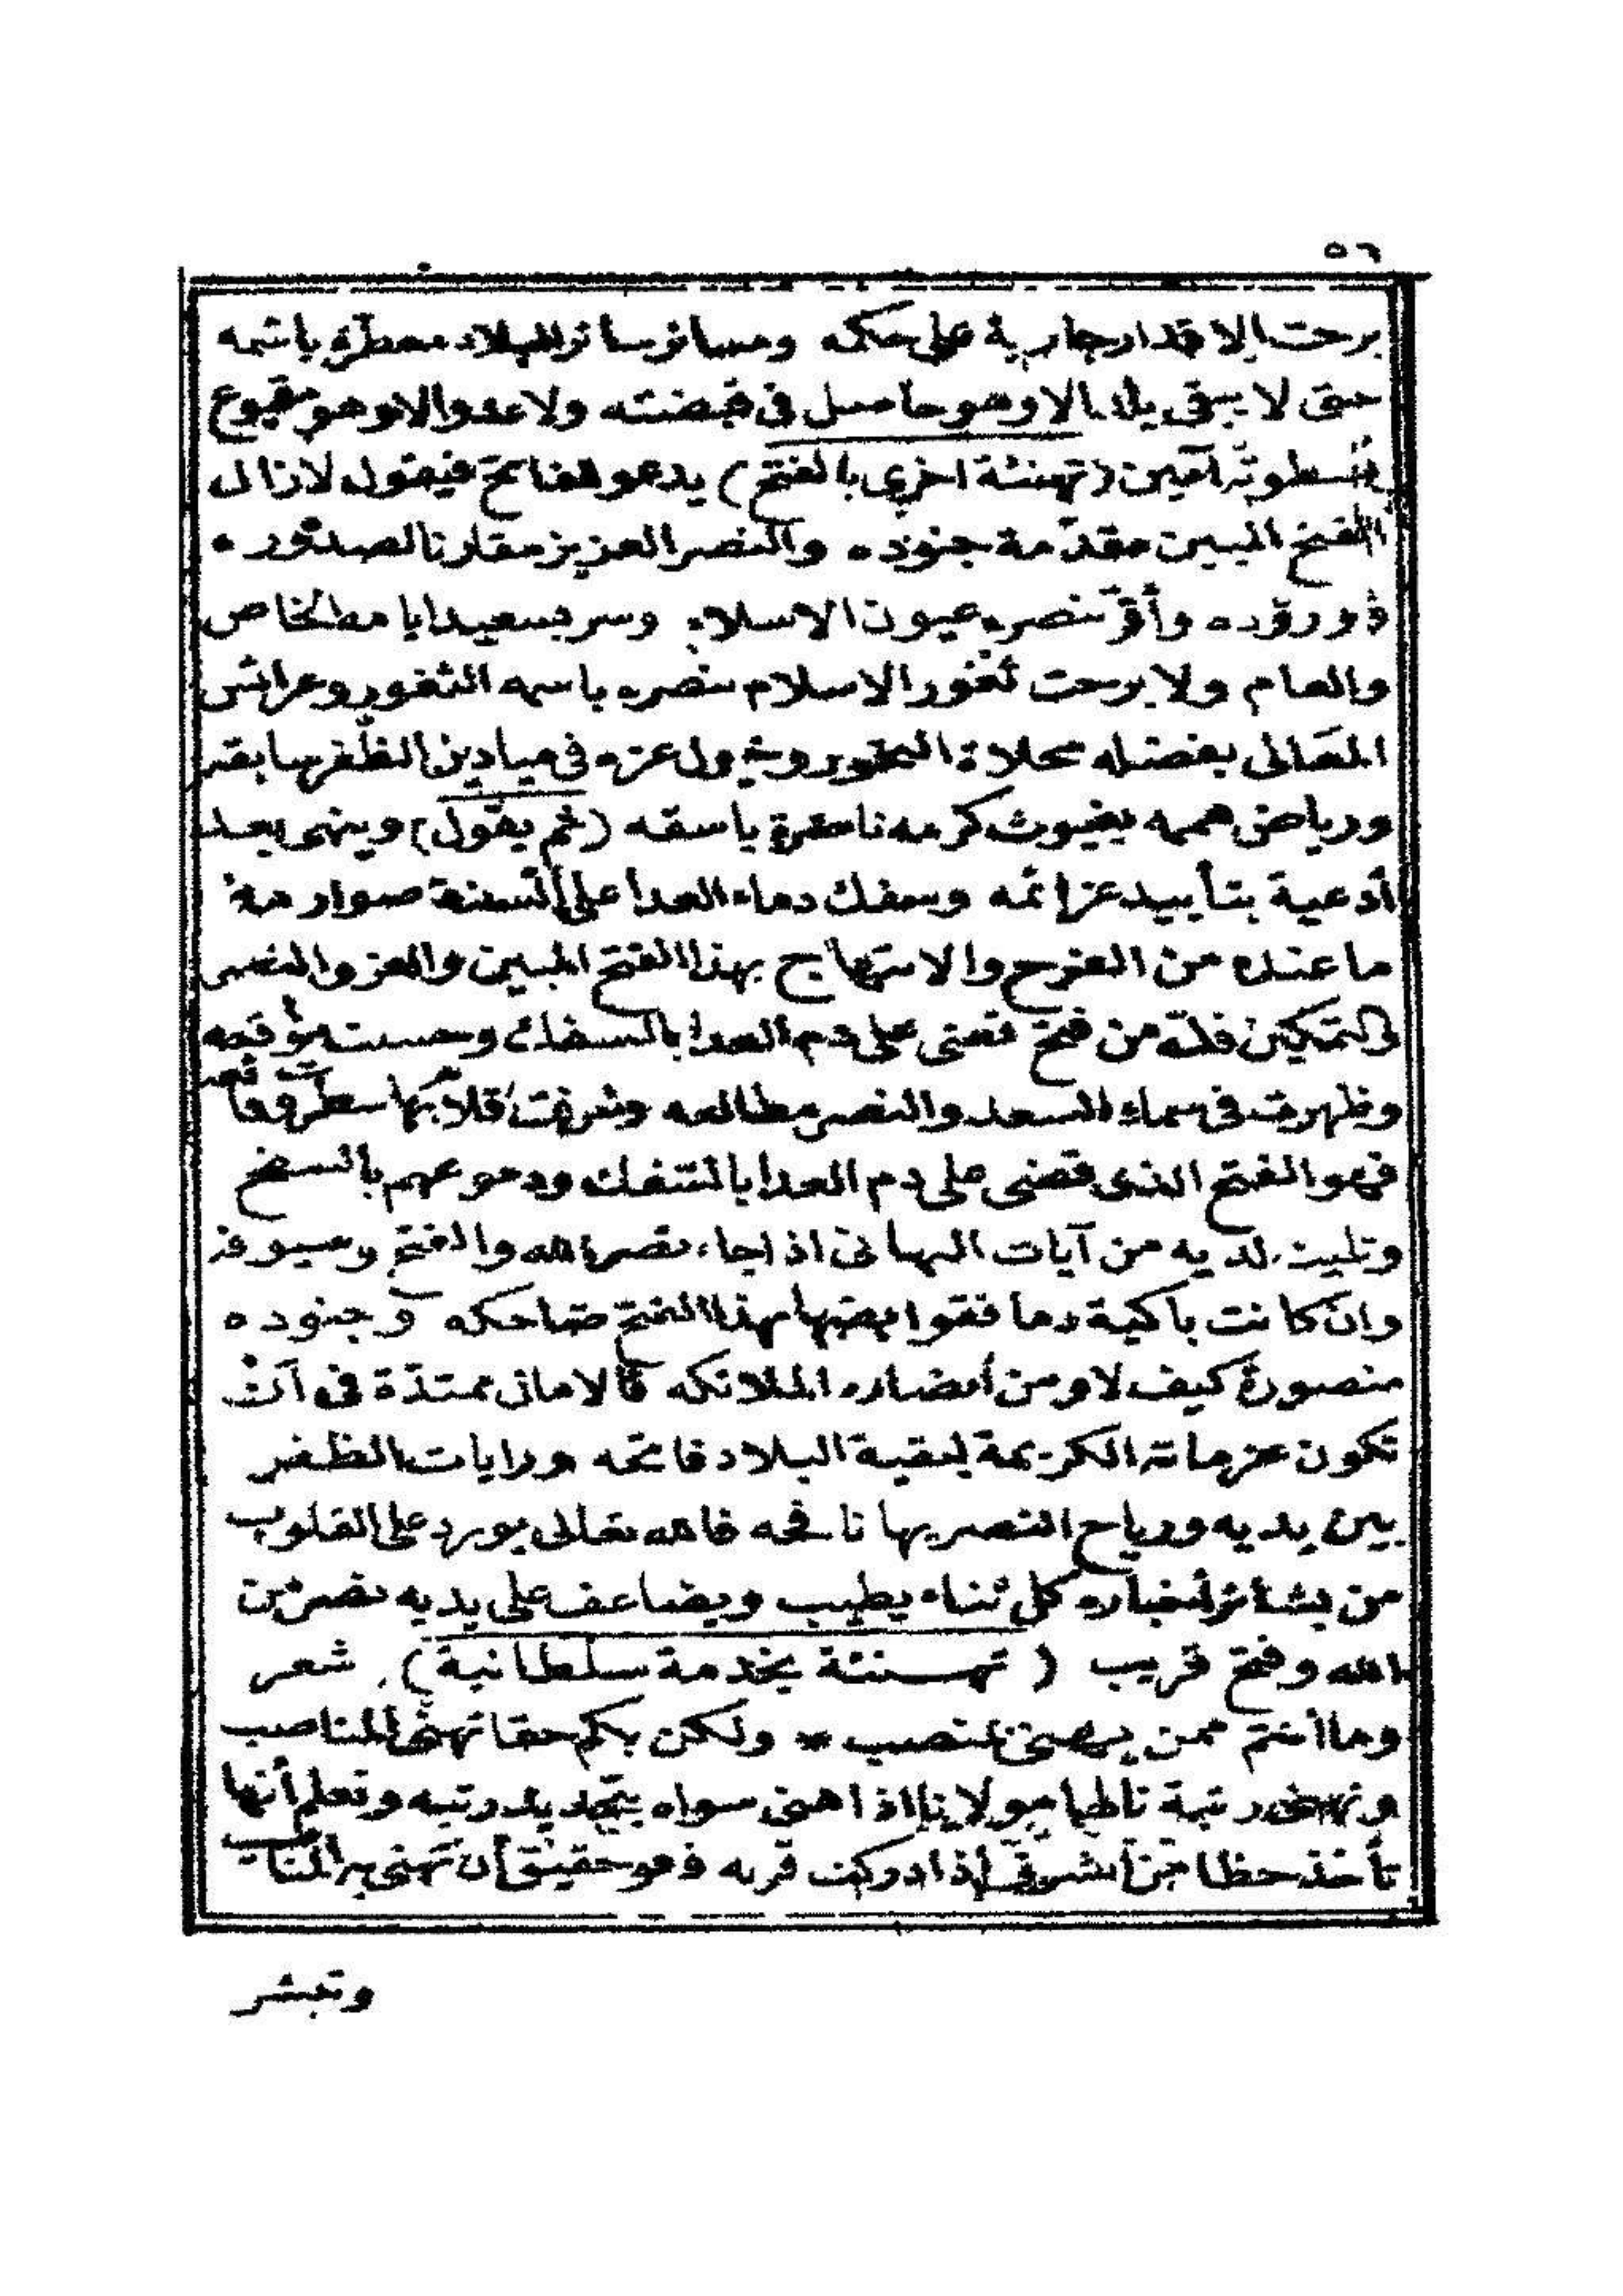 ٥٦
برحت الاقدار جارية على حكمه ومنابر سائر البلاد معطرة باسمه
حتى لا يبقى بلد الا وهو حاصل فى قبضته ولا عدو الا وهو مقموع
بسطوته آمين (تهنئة اخرى بالفتح) يدعو للفاتح فيقول لازال
الفتح المبين مقدّمة جنوده والنصر العزيز مقارنا لصدوره
ووروده وأقرّ بنصره عيون الاسلام وسر بسعيد ايامه الخاص
والعام ولا برحت ثغور الاسلام بنصره باسمه الثغور وعرائس
المعالى بفضله محلاة النحور وخيول عزه فى ميادين الظفر سابقه
ورياض هممه بغيوث كرمه ناضرة باسقه (ثم يقول) وينهى بعد
أدعية بتأييد عزائمه وسفك دماء العدا على ألسنة صوارمه
ما عنده من الفرح والابتهاج بهذا الفتح المبين والعز والنصر
والتمكين فلله من فتح قضى على دم العدا بالسفك وحسنت مواقعه
وظهرت فى سماء السعد والنصر مطالعه وشرفت أقلام بها سطرت وقائعه
فهو الفتح الذى قضى على دم العدا بالسفك ودموعهم بالسفح
وتليت لديه من آيات التهانى اذا جاء نصر الله والفتح وسيوفه
وان كانت باكية دما فقواضبها بهذا الفتح ضاحكه وجنوده
منصورة كيف لا ومن أنصاره الملائكه فالامانى ممتدّة فى أن
تكون عزماته الكريمة لبقية البلاد فاتحه ورايات الظفر
بين يديه ورياح النصر بها نافحه فالله تعالى يورد على القلوب
من بشائر أخباره كل ثناء يطيب ويضاعف على يديه نصر من
الله وفتح قريب (تهنئة بخدمة سلطانية) شعر
وما أنتم ممن يهنى بمنصب * ولكن بكم حقا تهنى المناصب
وتهنى رتبة ناطها مولانا اذا هنى سواه بتجديد رتبه وتعلم أنها
تأخذ حظا من الشرف إذا ادركت قربه فهو حقيق أن تهنى به المناصب
وتبشر